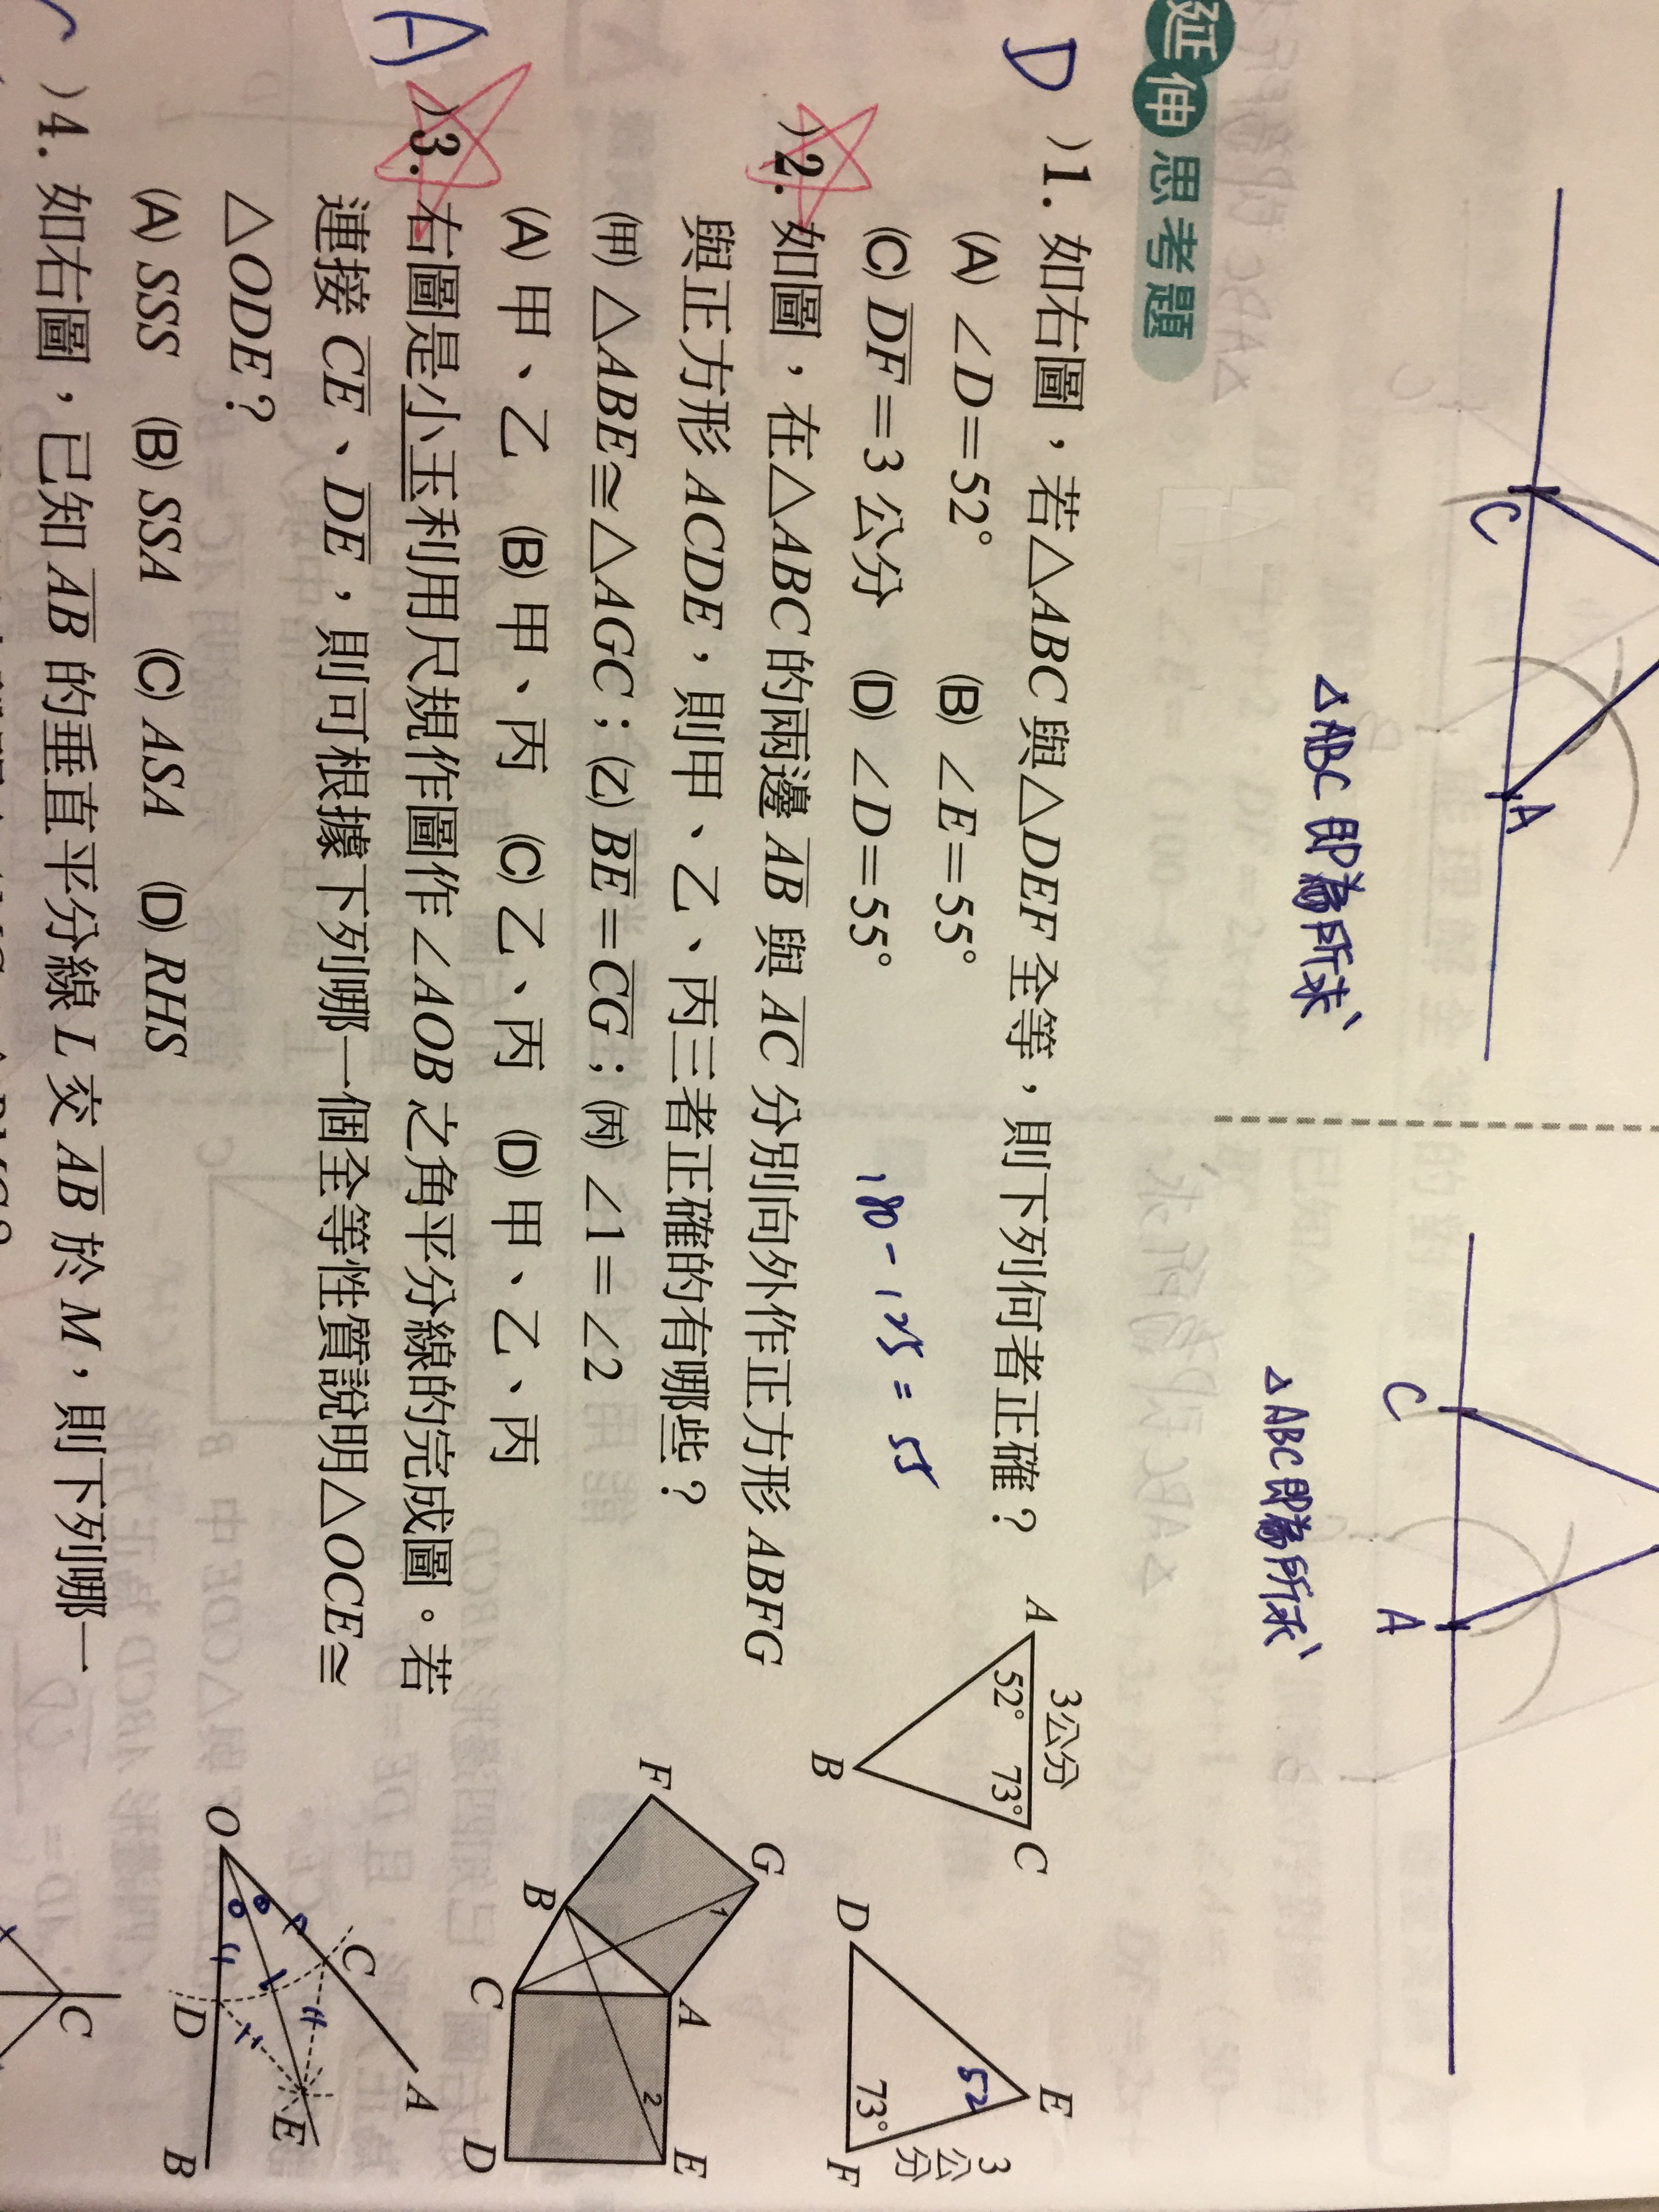 C
A
△ABC即為所求、
C
A
△ABC即為所求、
延伸思考題
D )1. 如右圖，若△ABC與△DEF全等，則下列何者正確？
(A) ∠D＝52° (B) ∠E＝55°
(C) DF＝3公分 (D) ∠D＝55°
180-125=55
A 3公分 C
52° 73°
B
D E F
52
73°
3公分
)2. 如圖，在△ABC的兩邊AB與AC分別向外作正方形ABFG
與正方形ACDE，則甲、乙、丙三者正確的有哪些？
(甲) △ABE≅△AGC；(乙) BE＝CG；(丙) ∠1＝∠2
(A) 甲、乙 (B) 甲、丙 (C) 乙、丙 (D) 甲、乙、丙
F G B A C D E
1 2
A )3. 右圖是小玉利用尺規作圖作∠AOB之角平分線的完成圖。若
連接CE、DE，則可根據下列哪一個全等性質說明△OCE≅
△ODE？
(A) SSS (B) SSA (C) ASA (D) RHS
O C A D E B
)4. 如右圖，已知AB的垂直平分線L交AB於M，則下列哪一
C